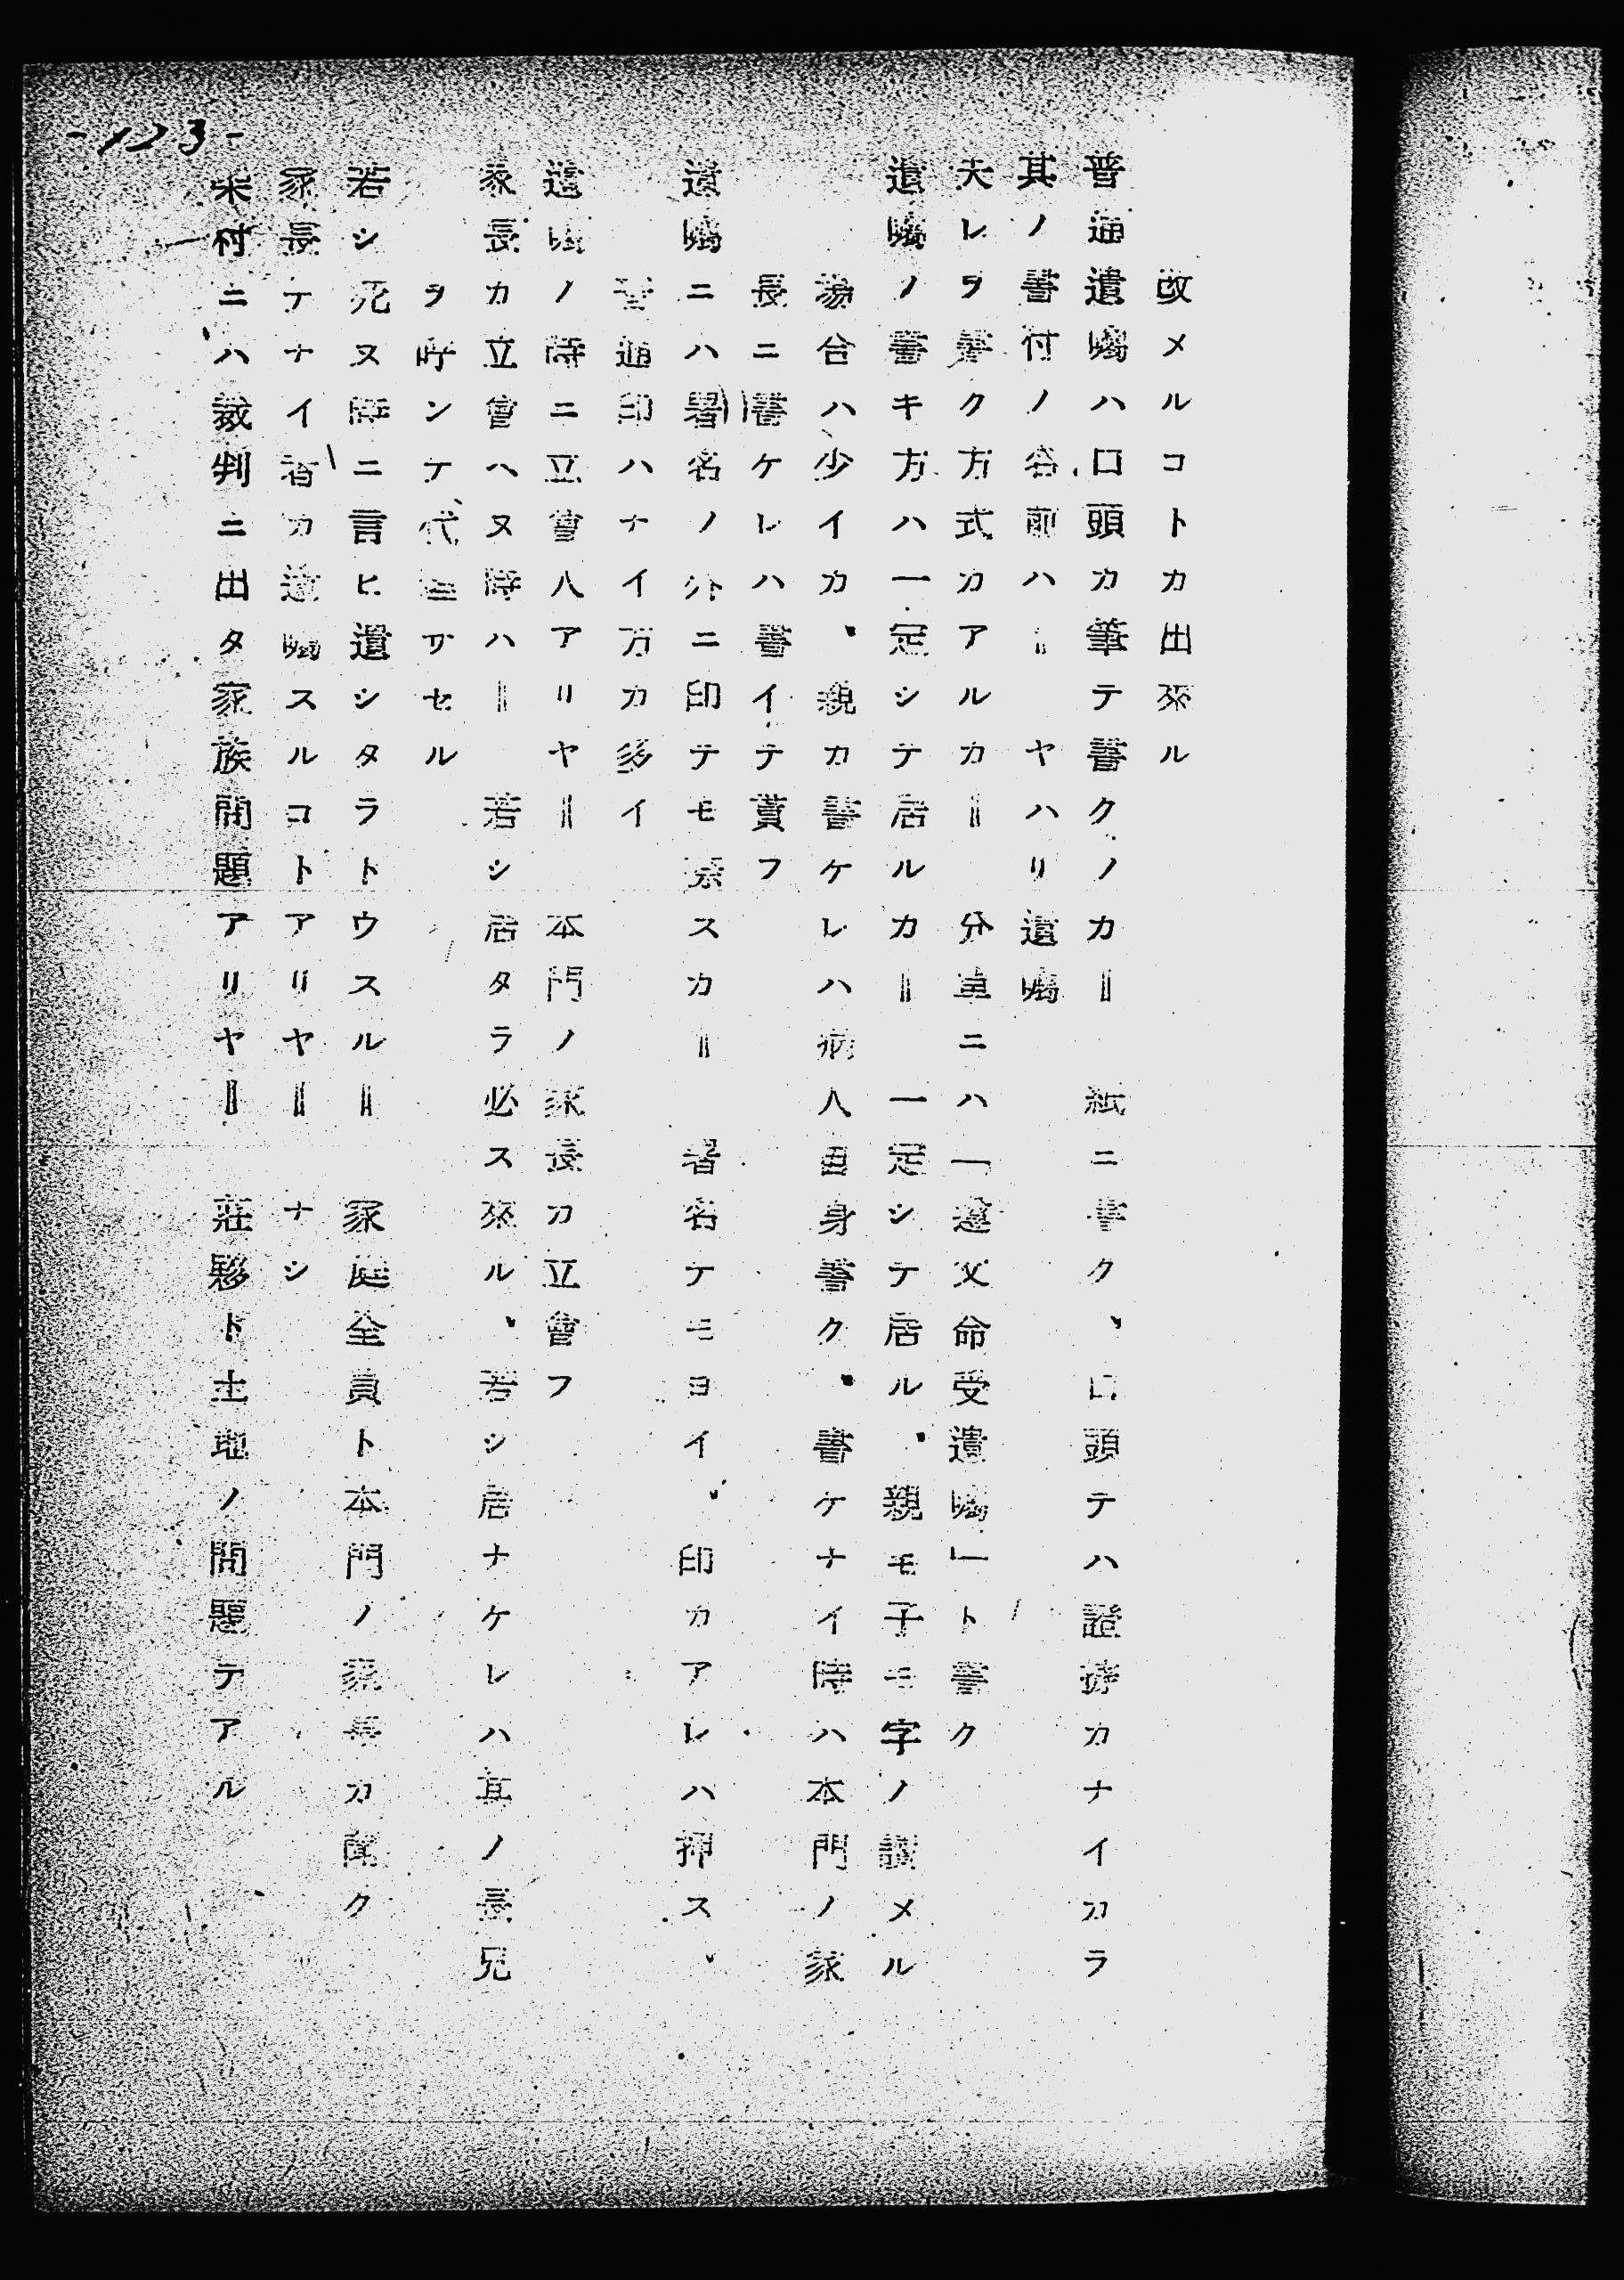 改メルコトカ出來ル
普通遺囑ハ口頭カ筆テ書クノカー‖ 紙ニ書ク、口頭テハ證據カナイカラ
其ノ書付ノ名前ハ‖ ヤハリ遺囑
夫レヲ書ク方式カアルカー‖ 分單ニハ「遵父命受遺囑」ト書ク
遺囑ノ書キ方ハ一定シテ居ルカー‖ 一定シテ居ル、親モ子モ字ノ讀メル
場合ハ少イカ、親カ書ケレハ病人自身書ク、書ケナイ時ハ本門ノ家
長ニ書ケレハ書イテ貰フ
遺囑ニハ署名ノ外ニ印テモ捺スカー‖ 署名テモヨイ、印カアレハ押ス、
普通印ハナイ方カ多イ
遺囑ノ時ニ立會人アリヤー‖ 本門ノ家長カ立會フ
家長カ立會ヘヌ時ハー‖ 若シ居タラ必ス來ル、若シ居ナケレハ其ノ長兄
ヲ呼ンテ代理サセル
若シ死ヌ時ニ言ヒ遺シタラトウスルー‖ 家庭全員ト本門ノ家長カ聞ク
家長テナイ者カ遺囑スルコトアリヤー‖ ナシ
本村ニハ裁判ニ出タ家族問題アリヤー‖ 莊夥ト土地ノ問題テアル
-123-